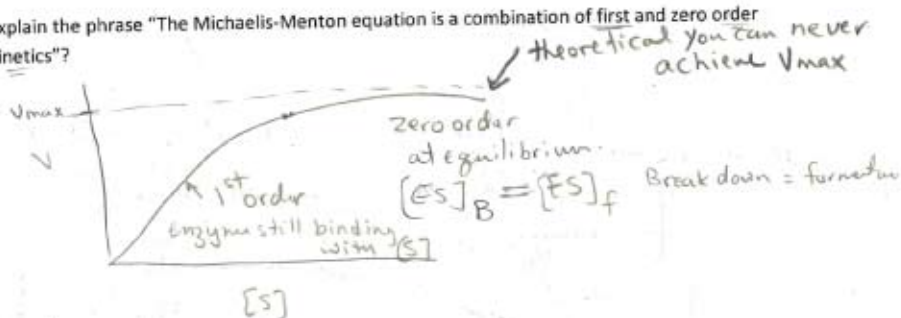 xplain the phrase "The Michaelis-Menton equation is a combination of first and zero order
inetics"?
theoretical you can never
achieve Vmax
Vmax
V
zero order
at equilibrium.
[ES]B = [ES]f Break down =
1st order
Enzyme still binding
with [S]
[S]